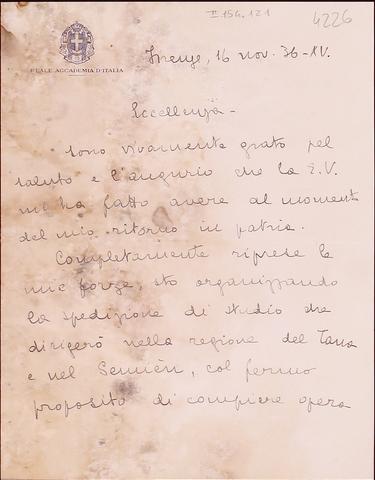 II 154, 121
4226
REALE ACCADEMIA D'ITALIA
Firenze, 16 nov. 36-XV.
Eccellenza -
sono vivamente grato pel
saluto e l'augurio che la E.V.
mi ha fatto avere al momento
del mio ritorno in patria.
Completamente riprese le
mie forze, sto organizzando
la spedizione di studio che
dirigerò nella regione del Tana
e nel Semièn, col fermo
proposito di compiere opera